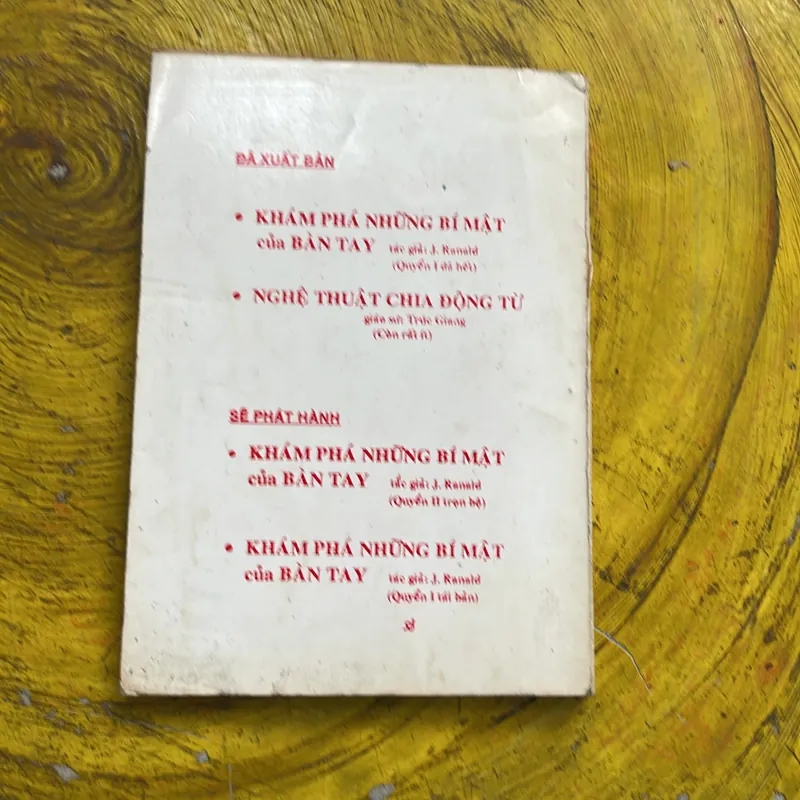 ĐÃ XUẤT BẢN
• KHÁM PHÁ NHỮNG BÍ MẬT
của BÀN TAY tác giả: J. Ranald
(Quyển I đã hết)
• NGHỆ THUẬT CHIA ĐỘNG TỪ
giáo sư: Trúc Giang
(Còn rất ít)
SẼ PHÁT HÀNH
• KHÁM PHÁ NHỮNG BÍ MẬT
của BÀN TAY tác giả: J. Ranald
(Quyển II trọn bộ)
• KHÁM PHÁ NHỮNG BÍ MẬT
của BÀN TAY tác giả: J. Ranald
(Quyển I tái bản)